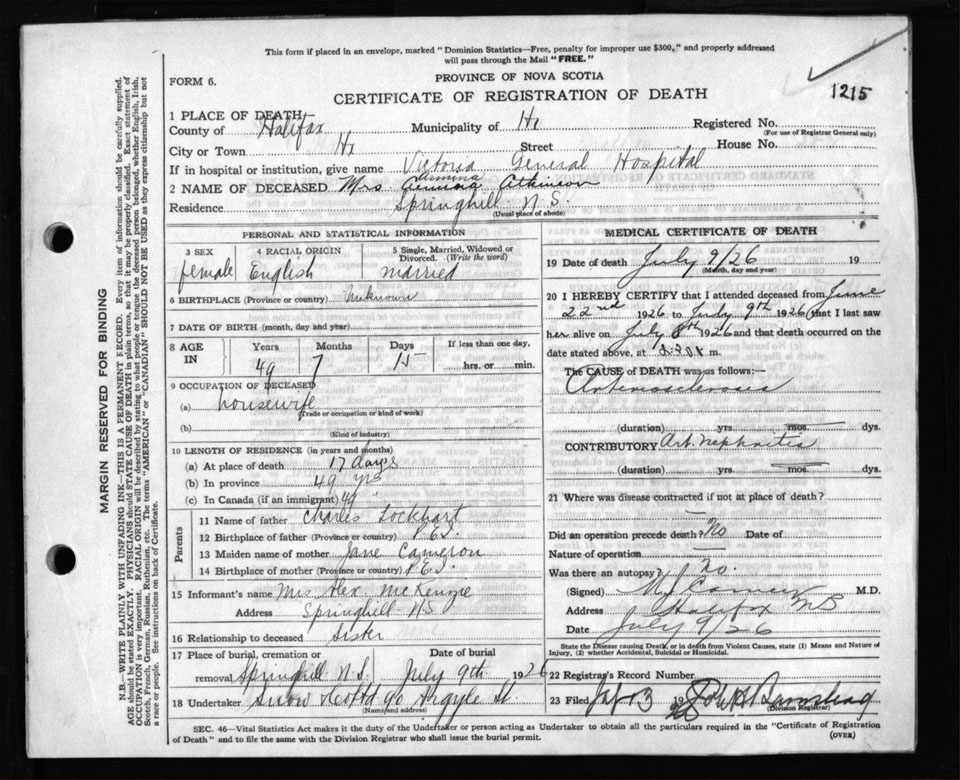 This form if placed in an envelope, marked "Dominion Statistics—Free, penalty for improper use $300," and properly addressed
will pass through the Mail "FREE."
FORM 6.
PROVINCE OF NOVA SCOTIA
CERTIFICATE OF REGISTRATION OF DEATH
1215
1 PLACE OF DEATH
County of Halifax Municipality of Hx Registered No.
(For use of Registrar General only)
City or Town Hx Street House No.
If in hospital or institution, give name Victoria General Hospital
Jemima
2 NAME OF DECEASED Mrs Atkinson
Residence Springhill N.S.
(Usual place of abode)
PERSONAL AND STATISTICAL INFORMATION
3 SEX
female
4 RACIAL ORIGIN
English
5 Single, Married, Widowed or
Divorced. (Write the word)
married
6 BIRTHPLACE (Province or country) Unknown
7 DATE OF BIRTH (month, day and year)
8 AGE
IN
Years Months Days If less than one day,
49 7 15 hrs. or min.
9 OCCUPATION OF DECEASED
(a) housewife
(Trade or occupation or kind of work)
(b)
(Kind of industry)
10 LENGTH OF RESIDENCE (in years and months)
(a) At place of death 17 days
(b) In province 49 yrs
(c) In Canada (if an immigrant) 49 "
Parents
11 Name of father Charles Lockhart
12 Birthplace of father (Province or country) P.E.I.
13 Maiden name of mother Jane Cameron
14 Birthplace of mother (Province or country) P.E.I.
15 Informant's name Mrs Alex. McKenzie
Address Springhill N.S
16 Relationship to deceased sister
17 Place of burial, cremation or Date of burial
removal Springhill N.S. July 9th 1926
18 Undertaker Snow Argyle St
(Name and address)
MEDICAL CERTIFICATE OF DEATH
19 Date of death July 9/26 19
(Month, day and year)
20 I HEREBY CERTIFY that I attended deceased from June
22nd 1926 to July 9th 1926 (that I last saw
her alive on July 8th 1926 and that death occurred on
date stated above, at m.
The CAUSE of DEATH was as follows:
Arteriosclerosis
(duration) yrs. mos. dys.
CONTRIBUTORY Art. nephritis
(duration) yrs. mos. dys.
21 Where was disease contracted if not at place of death?
Did an operation precede death? No Date of
Nature of operation
Was there an autopsy? No.
(Signed) M.D.
Address Halifax NS
Date July 9/26
State the Disease causing Death, or in death from Violent Causes, state (1) Means and Nature of
Injury, (2) whether Accidental, Suicidal or Homicidal.
22 Registrar's Record Number
23 Filed 13 19
(Division Registrar)
SEC. 46—Vital Statistics Act makes it the duty of the Undertaker or person acting as Undertaker to obtain all the particulars required in the "Certificate of Registration
of Death" and to file the same with the Division Registrar who shall issue the burial permit. (OVER)
MARGIN RESERVED FOR BINDING
N.B.—WRITE PLAINLY WITH UNFADING INK—THIS IS A PERMANENT RECORD. Every item of information should be carefully supplied.
AGE should be stated EXACTLY. PHYSICIANS should STATE CAUSE OF DEATH in plain terms, so that it may be properly classified. Exact statement of
OCCUPATION is very important. RACIAL ORIGIN will be described by stating to what people or tongue the deceased person belonged, whether English, Irish,
Scotch, French, German, Russian, Ruthenian, etc. The terms "AMERICAN" or "CANADIAN" SHOULD NOT BE USED as they express citizenship but not
a race or people. See instructions on back of Certificate.